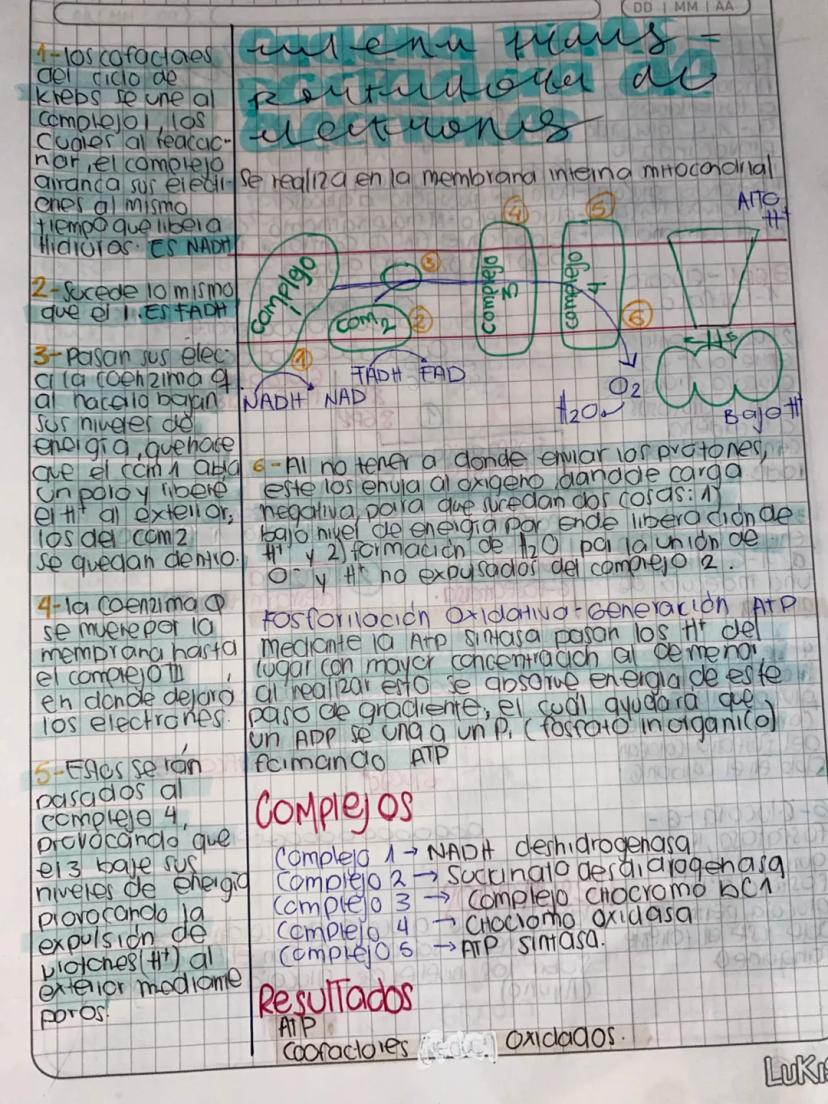 DD | MM | AA
Cadena trans-
portadora de
electrones
1-los cofactores
del ciclo de
Krebs se une al
complejo I, los
cuales al reaccio-
nar, el complejo
arranca sus electr-
ones al mismo
tiempo que libera
Hidruros. ES NADH
2-Sucede lo mismo
que el 1. ES FADH
3-Pasan sus elec.
a la coenzima q.
al hacerlo bajan
sus niveles de
energía, que hace
que el com 1 abra
un poro y libere
el H+ al exterior,
los del com2
se quedan dentro.
4-la coenzima Q
se mueve por la
membrana hasta
el complejo III,
en donde dejará
los electrones.
5-Estos serán
pasados al
complejo 4,
provocando que
el 3 baje sus
niveles de energía
provocando la
expulsión de
protones (H+) al
exterior mediante
poros.
Se realiza en la membrana interna mitocondrial
Alto
H+
Complejo
1
com 2
3
Complejo
3
4
complejo
4
5
6
2
1
H+s
NADH NAD
FADH FAD
O2
H2O
Bajo H+
6-Al no tener a donde enviar los protones,
este los envia al oxigeno dandole carga
negativa, para que sucedan dos cosas: 1)
bajo nivel de energía por ende liberación de
H+ y 2) formación de H2O por la unión de
O- y H+ no expulsados del complejo 2.
Fosforilación Oxidativa-Generación ATP
mediante la ATP sintasa pasan los H+ del
lugar con mayor concentración al de menor
al realizar esto se absorve energía de este
paso de gradiente, el cual ayudara que
un ADP se una a un Pi (fosfato inorganico)
formando ATP
Complejos
Complejo 1 → NADH deshidrogenasa
Complejo 2 → Succinato desdidrogenasa
Complejo 3 → Complejo citocromo bC1
Complejo 4 → Citocromo oxidasa
Complejo 5 → ATP sintasa.
Resultados
ATP
Coofactores oxidados.